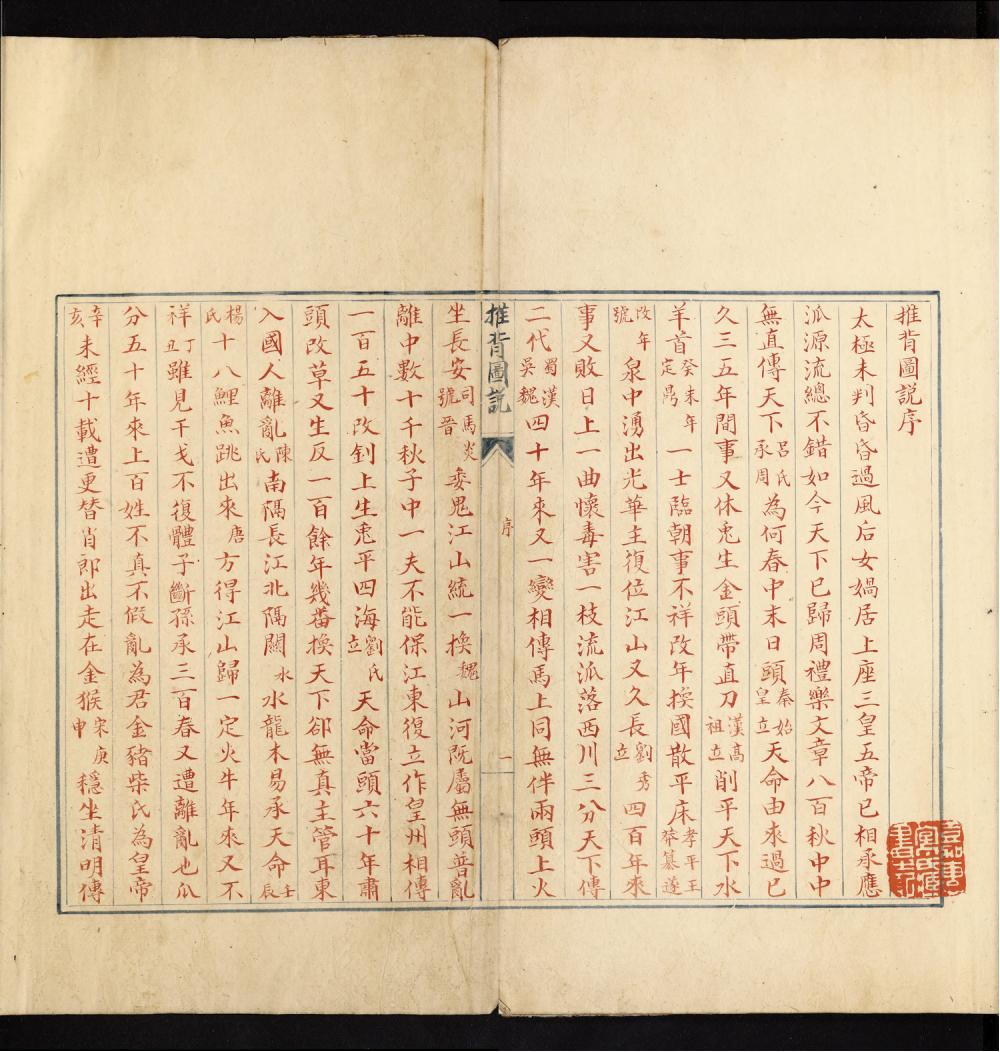 推背圖說序
太極未判昏昏過風后女媧居上座三皇五帝已相承應
派源流總不錯如今天下已歸周禮樂文章八百秋中中
無直傳天下呂氏承周為何春中末日頭秦始皇立天命由來過已
久三五年間事又休兎生金頭帶直刀漢高祖立削平天下水
羊首癸未年定鼎一士臨朝事不祥改年換國散平床孝平王莽纂遂
改年號泉中湧出光華主復位江山又久長劉秀立四百年來
事又敗日上一曲懷毒害一枝流派落西川三分天下傳
二代蜀漢吳魏四十年來又一變相傳馬上同無伴兩頭上火
推背圖說
序
一
坐長安司馬炎號晉委鬼江山統一換魏山河既屬無頭普亂
離中數十千秋子中一夫不能保江東復立作皇州相傳
一百五十改釗上生兎平四海劉氏立天命當頭六十年肅
頭改草又生反一百餘年幾番換天下卻無真主管耳東
入國人離亂陳氏南隔長江北隔關水水龍木易承天命壬辰
楊氏十八鯉魚跳出來唐方得江山歸一定火牛年來又不
祥丁丑雖見干戈不復體子斷孫承三百春又遭離亂也瓜
分五十年來上百姓不真不假亂為君金豬柴氏為皇帝
辛亥未經十載遭更替肖郎出走在金猴宋庚申穩坐清明傳